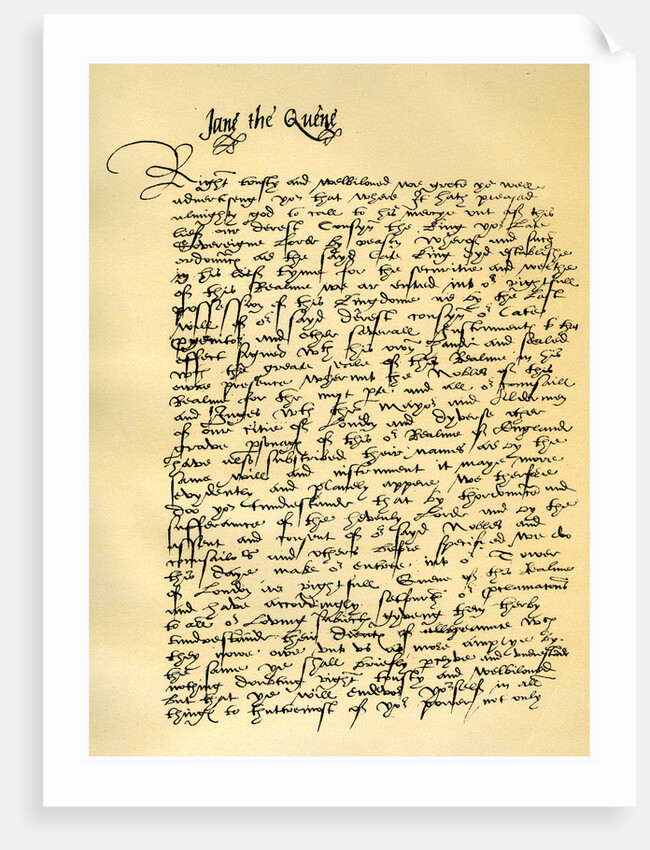 Jane the Quene
Right trusty and welbiloued we grete yow well
advertesing yow that where yt hath pleased
almighty god to call to his mercye out of this
lief our derest Cousyn the King yor late
Sovereigne Lorde by reason wherof and suche
ordinance as the sayd late King dyd establishe
in his lief tyme for the securitie and welthe
of this Realme we ar entred into or rightfull
possession of this kingdome as by the last
will of or sayd derest cousyn or late
Progenitor and other severall Instrument to that
effect signed wth his own hande and sealed
wt the greate seale of this Realme in his
owne presence wherunto the Nobles of this
Realme for the most pte and all or Counsaill
and Judges wth the Mayor and Aldermen
of our citie of London and dyverse other
grave psonages of this or Realme of England
have also subscribed their names as by the
same will and instrument it maye more
evydently and playnely appere we therfore
doo yow tundrestande that by thordinance and
sufferance of the hevenly Lorde and by the
assent and consent of or sayd Nobles and
counsailors and others before specified we do
this daye make or entree into or Tower
of London as rightfull Quene of this Realme
and have accordingly settfurth or proclamacions
to all or loving subiects gyveng them therby
tundrestande their duety of allegeance wch
they nowe owe unto us as more amplye by
the same ye shall briefly pceyve and understand
nothing doubting right trusty and welbiloued
but that ye will endevor yorself in all
things to thuttermost of yor power not only